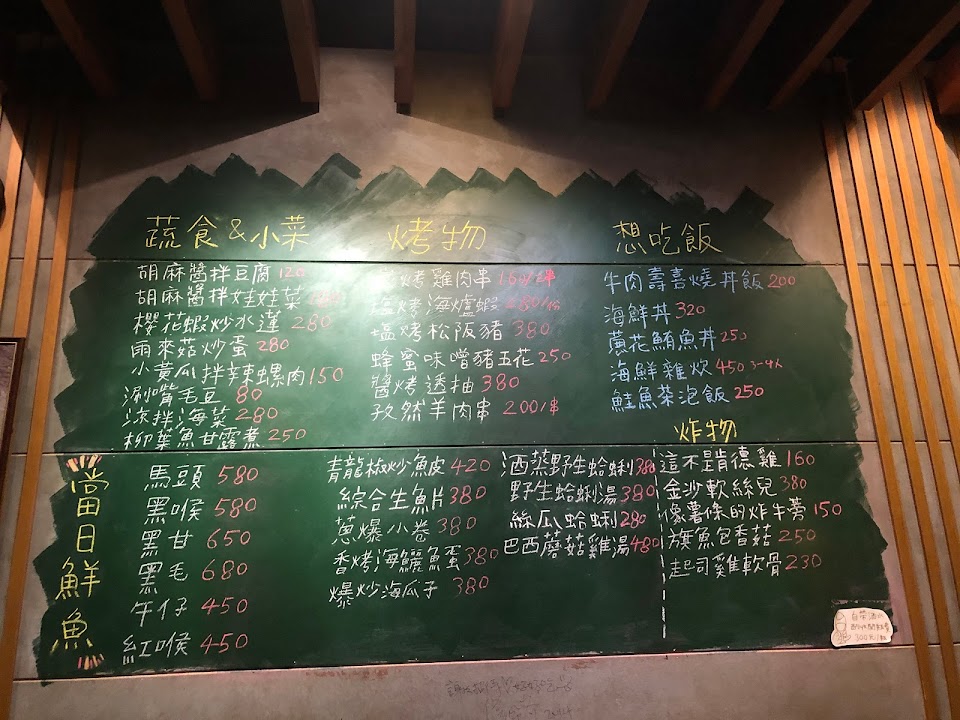 蔬食&小菜
胡麻醬拌豆腐 120
胡麻醬拌娃娃菜
櫻花蝦炒水蓮 280
雨來菇炒蛋 280
小黃瓜拌辣螺肉 150
涮嘴毛豆 80
涼拌海菜 280
柳葉魚甘露煮 250
烤物
烤雞肉串 160/串
塩烤海爐蝦 280/份
塩烤松阪豬 380
蜂蜜味噌豬五花 250
醬烤透抽 380
孜然羊肉串 200/串
想吃飯
牛肉壽喜燒丼飯 200
海鮮丼 320
蔥花鮪魚丼 250
海鮮雜炊 450 3-4人
鮭魚茶泡飯 250
當日鮮魚
馬頭 580
黑喉 580
黑甘 650
黑毛 680
午仔 450
紅喉 450
青龍椒炒魚皮 420
綜合生魚片 380
蔥爆小卷 380
香烤海鱺魚蛋 380
爆炒海瓜子 380
酒蒸野生蛤蜊 380
野生蛤蜊湯 380
絲瓜蛤蜊 280
巴西蘑菇雞湯 480
炸物
這不是肯德雞 160
金沙軟絲兒 380
像薯條的炸牛蒡 150
旗魚包香菇 250
起司雞軟骨 230
自帶酒水
酌收開瓶費
300元/瓶